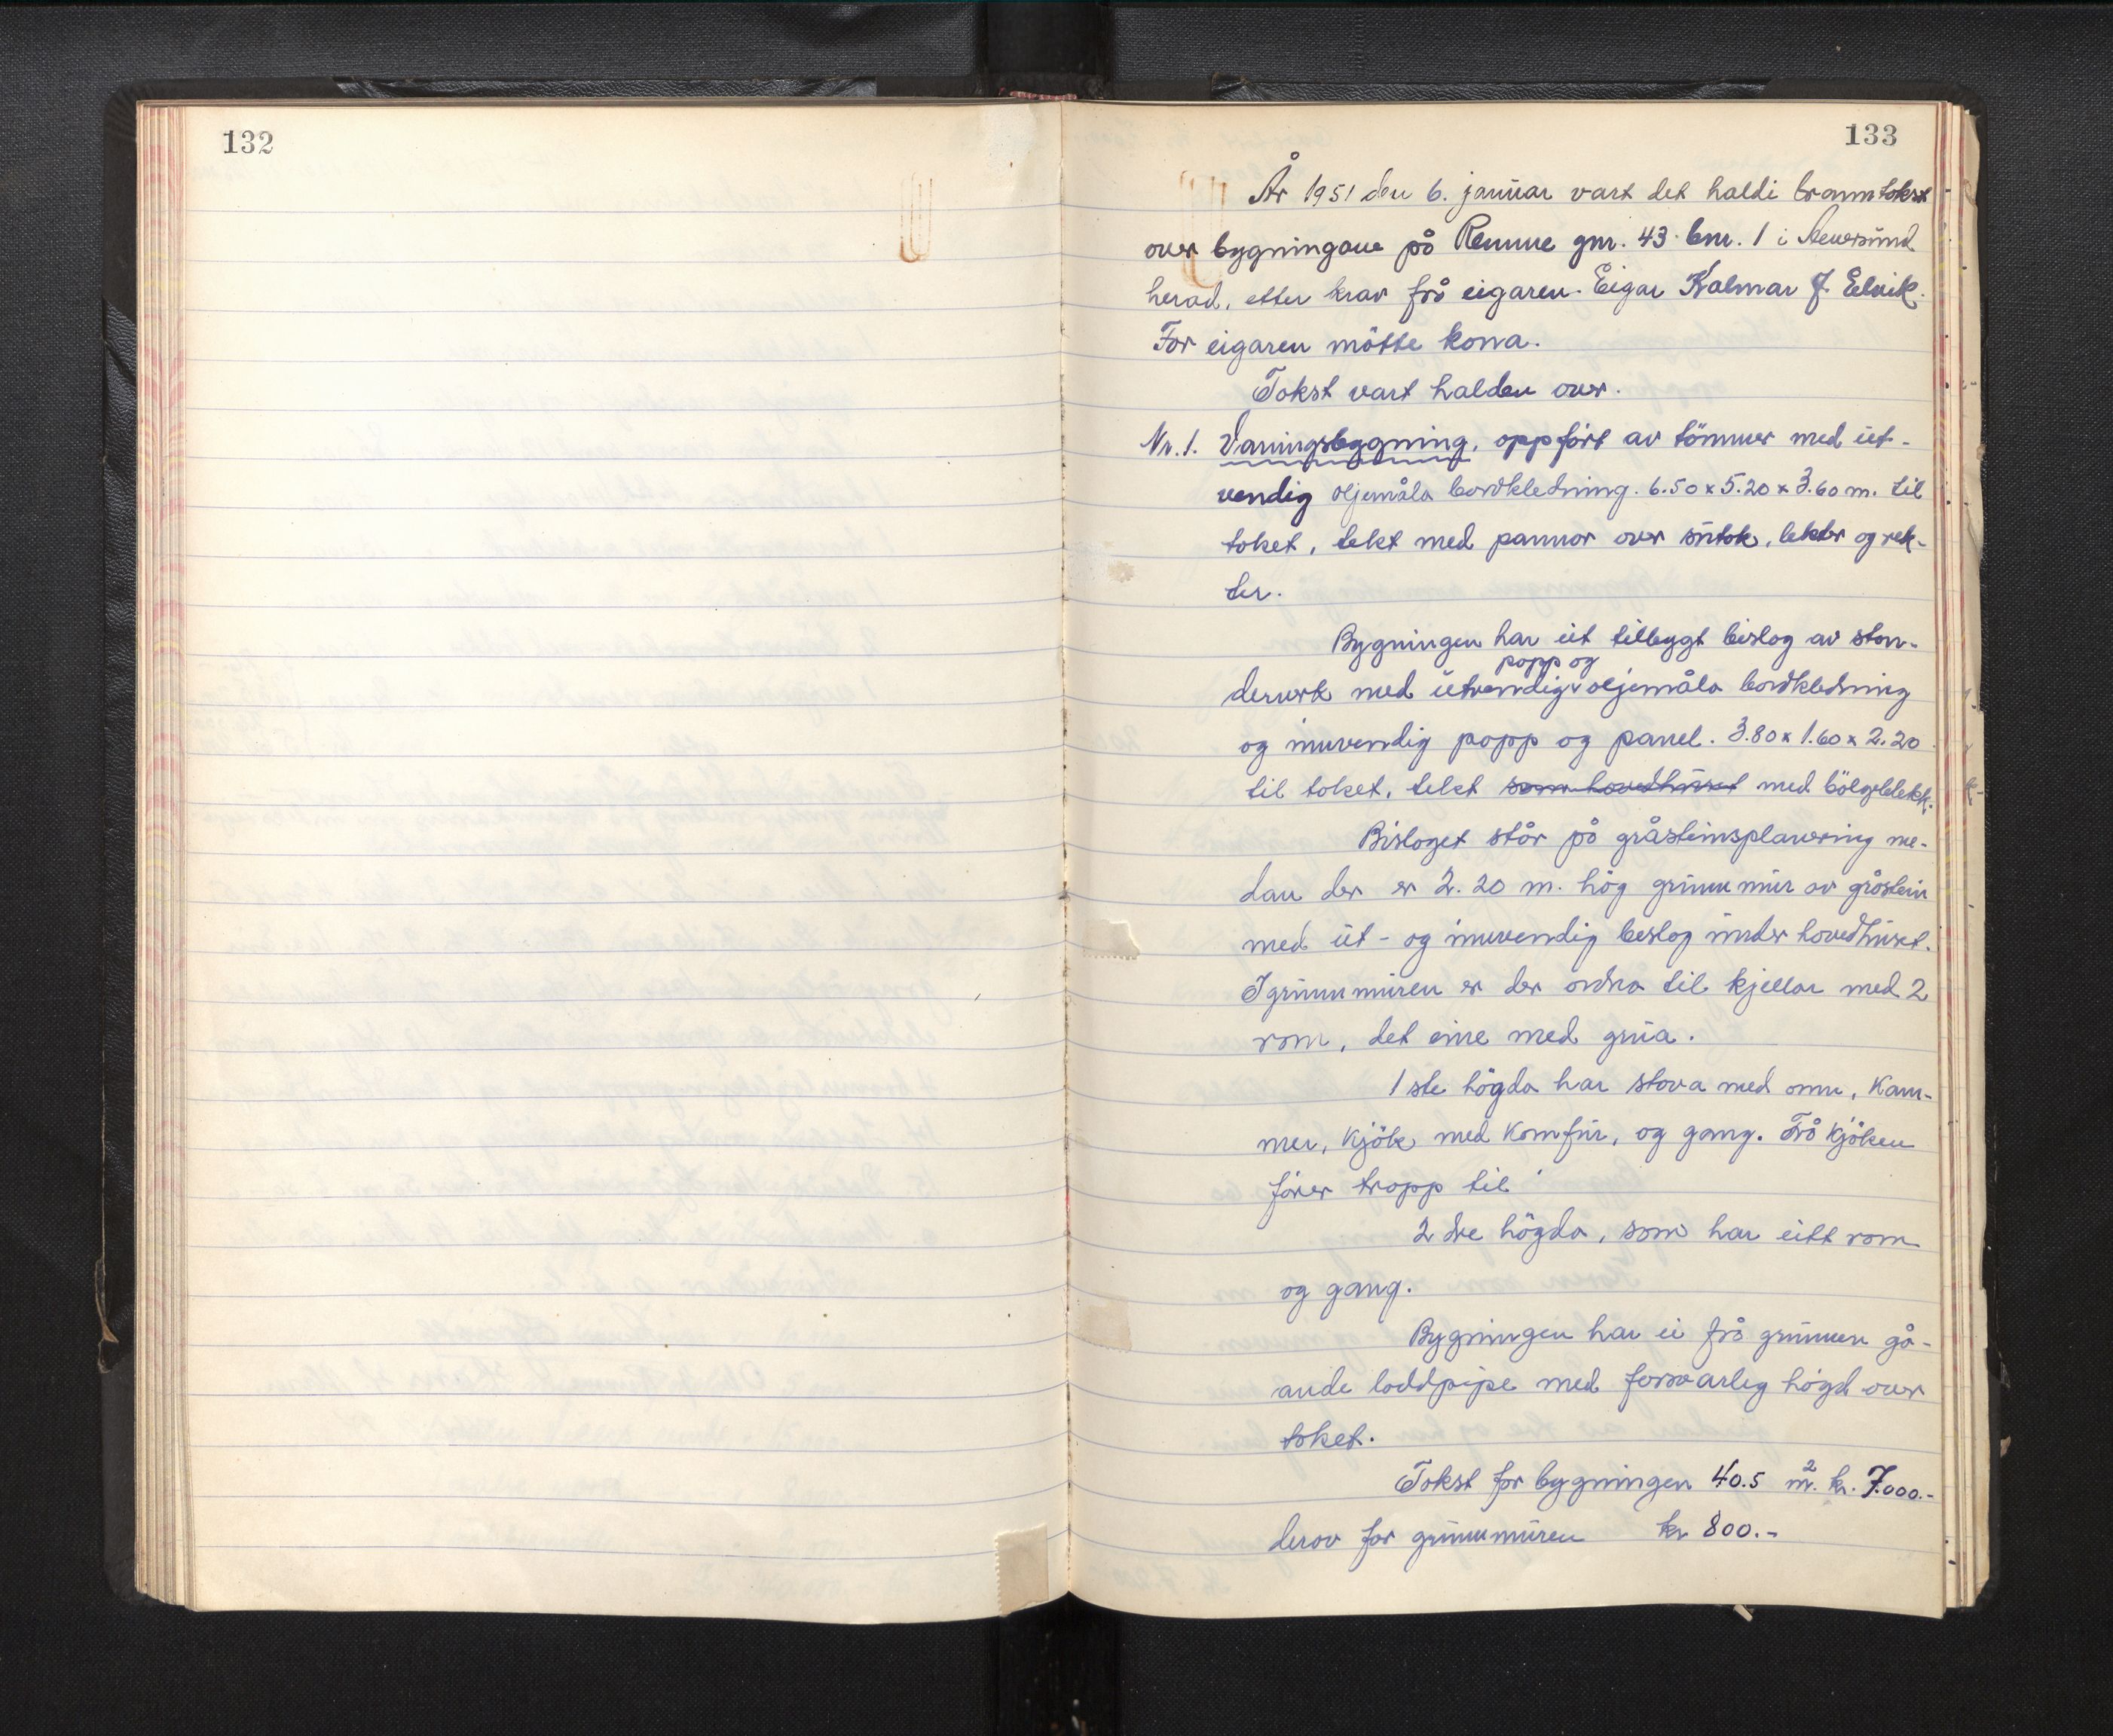 132
133
År 1951 den 6. januar vart det haldi branntakst
over bygningane på Remme gnr. 43 bnr. 1 i
herad, etter krav frå eigaren. Eigar Kalmar J. Eelvik.
For eigaren mötte kona.
Takst vart halden over.
Nr. 1. Vaningsbygning, oppfört av tömmer med ut-
vendig oljemåla bordkledning. 6.50 x 5.20 x 3.60 m. til
taket, tekt med pannor over sutak, lekter og rek-
ter.
Bygningen har eit tilbygt bislag av stan-
papp og
derverk med utvendig oljemåla bordkledning
og innvendig papp og panel. 3.80 x 1.60 x 2.20
til taket, tekt som hovedhuset med bölgeblekk.
Bislaget står på gråsteinsplanering me-
dan der er 2.20 m. hög grunnmur av gråstein
med ut- og innvendig beslag under hovedhuset.
I grunnmuren er der ordna til kjellar med 2
rom, det eine med grua.
1ste högda har stova med omn, kam-
mer, kjök med komfur, og gang. Frå kjöken
förer tropp til
2dre högda, som har eitt rom
og gang.
Bygningen har ei frå grunnen gå-
ande loddpipe med forsvarleg högd over
taket.
Takst for bygningen 40.5 m². kr. 7.000.-
derav for grunnmuren kr 800.-